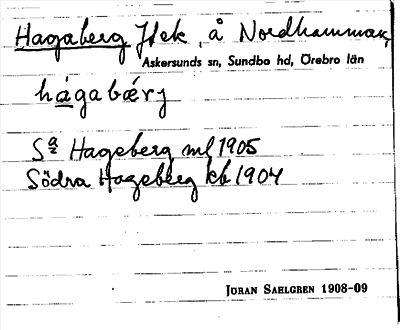 Hagaberg Hek, å Nordhammar,
Askersunds sn, Sundbo hd, Örebro län
hágabærj
Sa Hageberg ml 1905
Södra Hageberg kb 1904
JÖRAN SAHLGREN 1908-09